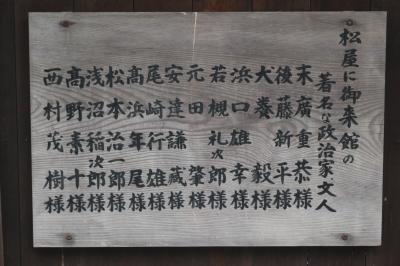 松屋に御来館の
著名な政治家文人
末廣重恭様
後藤新平様
犬養毅様
浜口雄幸様
若槻礼次郎様
元田肇様
安達謙蔵様
尾崎行雄様
高浜年尾様
松本治一郎様
浅沼稲次郎様
高野素十様
西村茂樹様